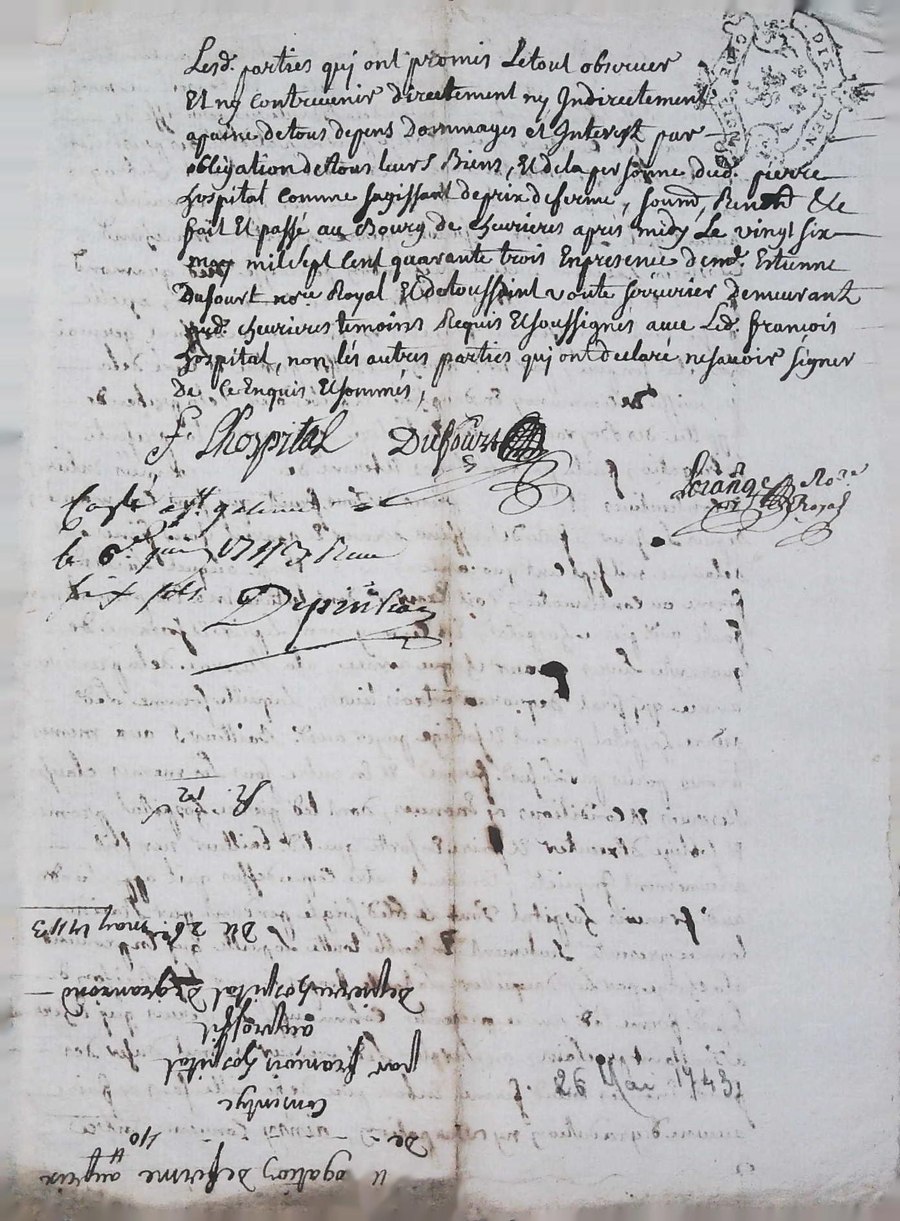 Lesd. parties qui ont promis Letout observer
Et ny contrevenir directement ny Indirectement
apaine detous depens dommages et Interest par
obligation detous leurs Biens, Et dela personne dud. pierre
hospital comme sagissant deprix deferme, soumd, Renond Etc
fait Et passé au Bourg de chevrieres apres midy Le vingt six
may mil sept Cent quarante trois Enpresence de me. Estienne
Dufourt nore Royal Et detoussaint voute serrurier Demeurant
aud. chevrieres temoins Requis Et soussignés avec Led. françois
hospital, non les autres parties qui ont declaré nesavoir signer
De Ce Enquis Et sommés,
f. Lhospital Dufourt
nore Royal
le 6e juin 1743 Receu
six sols
Du 26e may 1743
depierre hospital degranzond
auproffit
par françois hospital
De 40
deferme
f. 26 Mai 1743